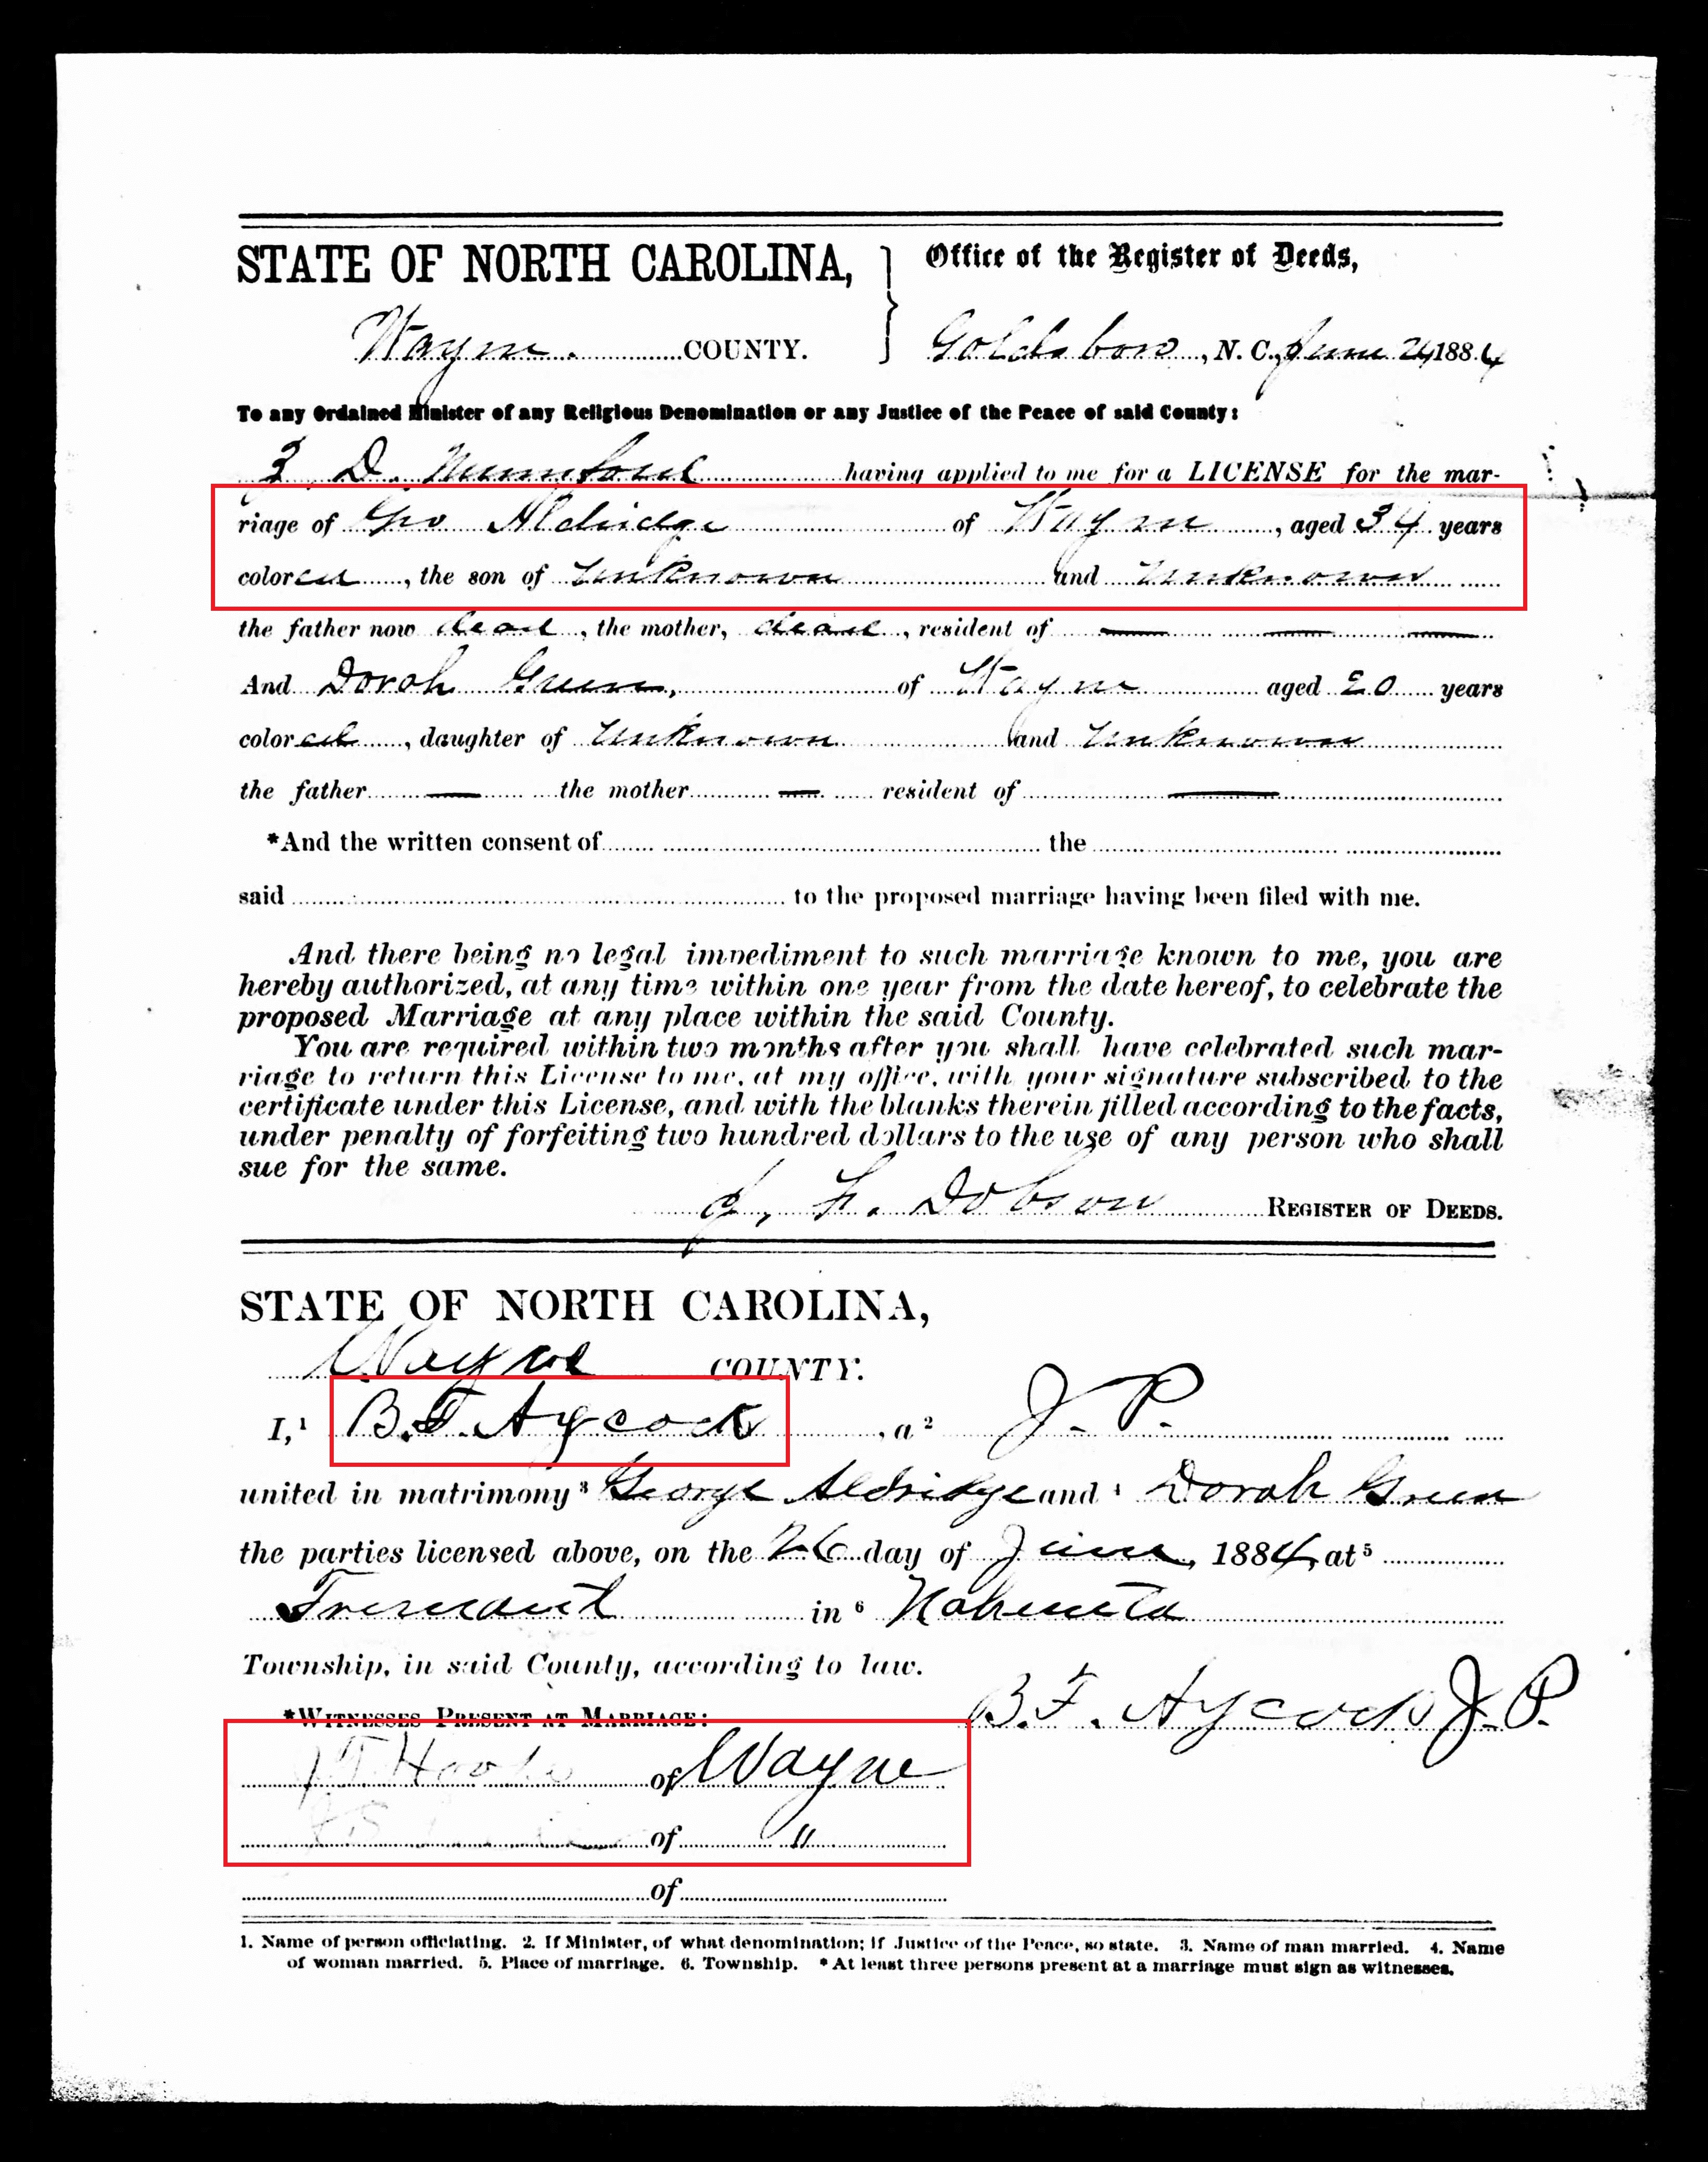 STATE OF NORTH CAROLINA, } Office of the Register of Deeds,
Wayne COUNTY. Goldsboro, N. C., June 24 1884
To any Ordained Minister of any Religious Denomination or any Justice of the Peace of said County:
D. Mumford having applied to me for a LICENSE for the mar-
riage of Geo Aldridge of Wayne, aged 34 years
colored, the son of Unknown and Unknown
the father now dead, the mother, dead, resident of
And Dorah Green, of Wayne aged 20 years
colored, daughter of Unknown and Unknown
the father — the mother — resident of —
*And the written consent of the
said to the proposed marriage having been filed with me.
And there being no legal impediment to such marriage known to me, you are
hereby authorized, at any time within one year from the date hereof, to celebrate the
proposed Marriage at any place within the said County.
You are required within two months after you shall have celebrated such mar-
riage to return this License to me, at my office, with your signature subscribed to the
certificate under this License, and with the blanks therein filled according to the facts,
under penalty of forfeiting two hundred dollars to the use of any person who shall
sue for the same.
Dobson REGISTER OF DEEDS.
STATE OF NORTH CAROLINA,
Wayne COUNTY.
I,¹ B.F. Aycock, a ² J. P.
united in matrimony ³ George Aldridge and ⁴ Dorah Green
the parties licensed above, on the 26 day of June, 1884, at ⁵
Fremont in ⁶ Nahunta
Township, in said County, according to law.
B. F. Aycock J. P.
*WITNESSES PRESENT AT MARRIAGE:
of Wayne
of "
of
1. Name of person officiating. 2. If Minister, of what denomination; if Justice of the Peace, so state. 3. Name of man married. 4. Name
of woman married. 5. Place of marriage. 6. Township. * At least three persons present at a marriage must sign as witnesses.